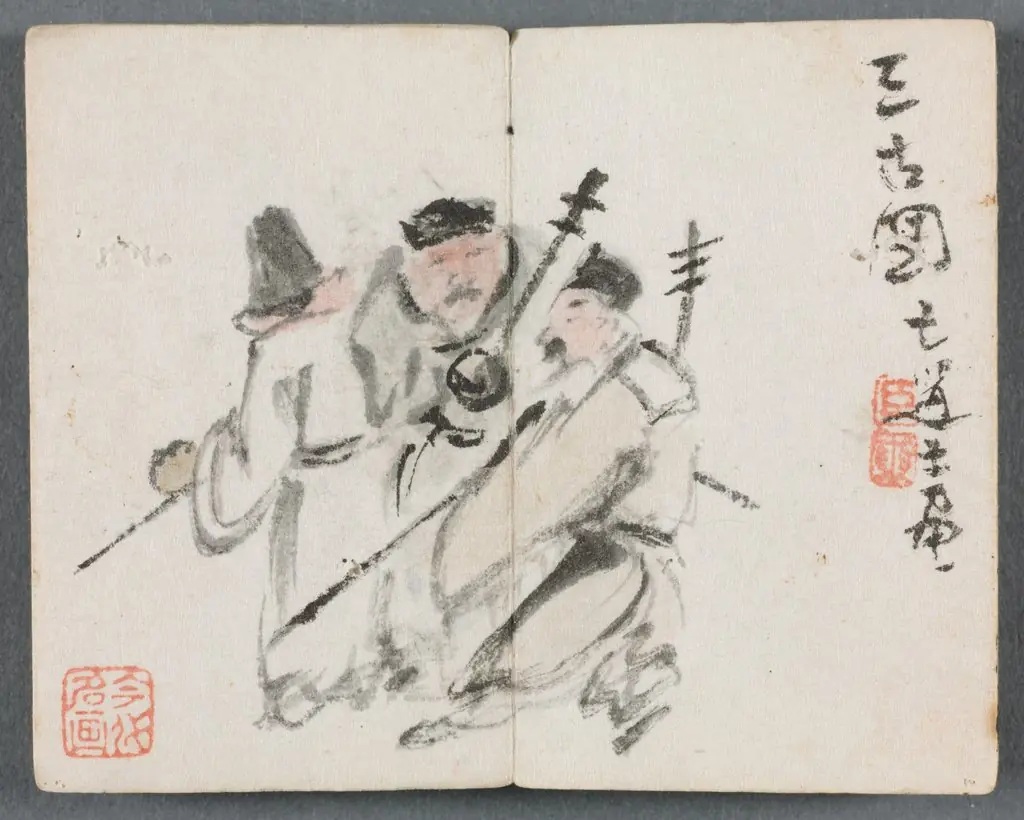 三古圖七道士畫